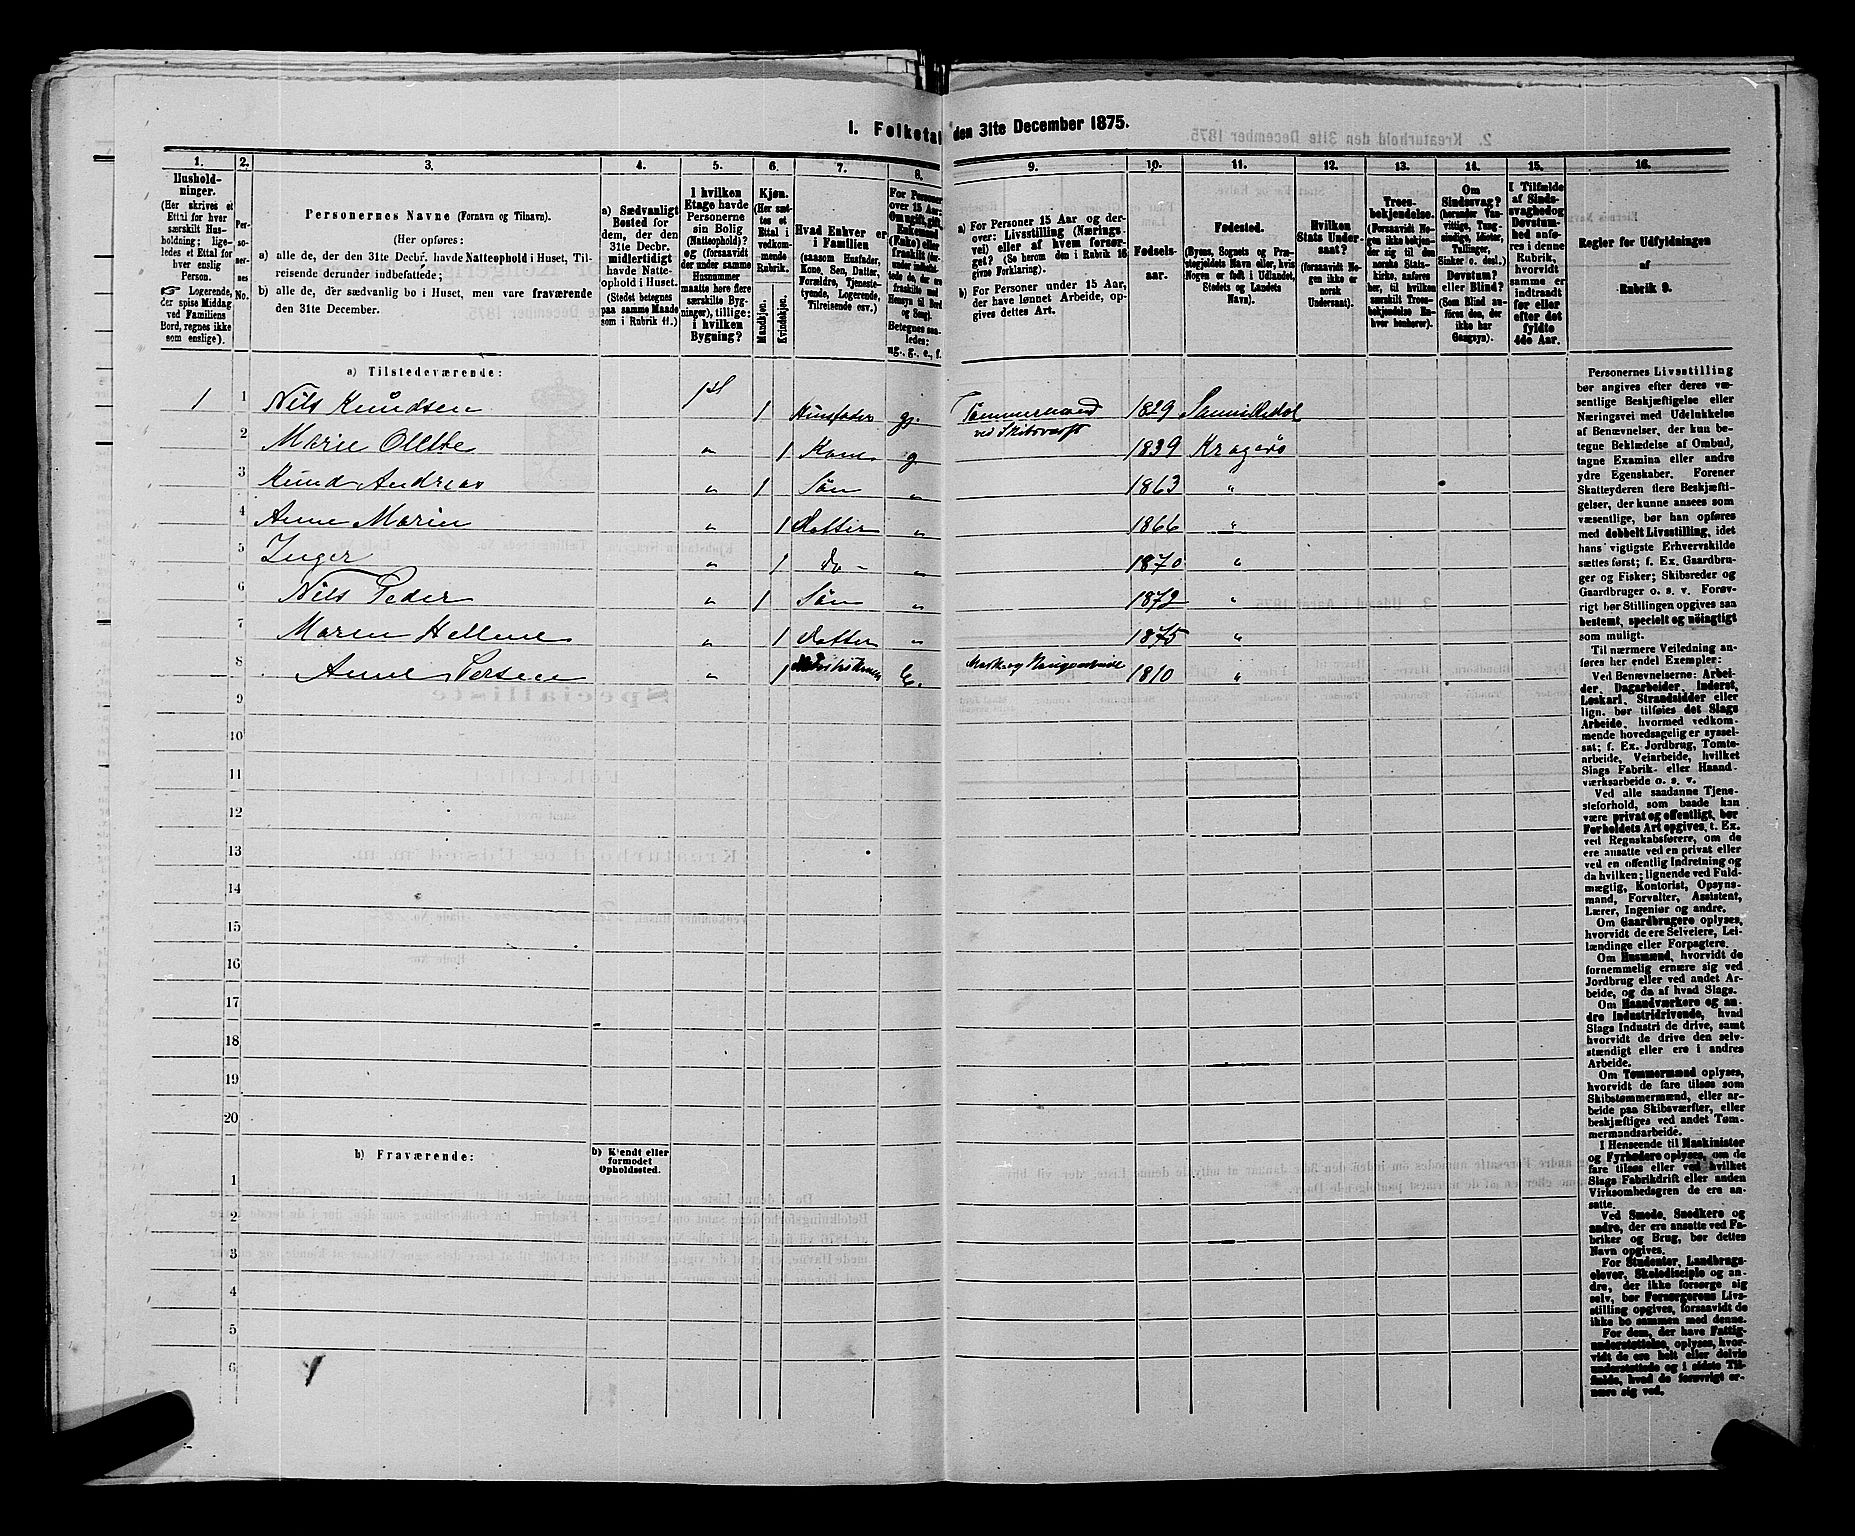 I. Folketal den 31te December 1875.
1. 2. 3. 4. 5. 6. 7. 8. 9. 10. 11. 12. 13. 14. 15. 16.
Hushold-
ninger.
(Her skrives et
Ettal for hver
særskilt Hus-
holdning; lige-
ledes et Ettal for
hver enslig
Person.
☞ Logerende,
der spise Middag
ved Familiens
Bord, regnes ikke
som enslige).
Per-
so-
ner-
nes
No.
Personernes Navne (Fornavn og Tilnavn).
(Her opføres:
a) alle de, der den 31te Decbr. havde Natteophold i Huset, Til-
reisende derunder indbefattede;
b) alle de, der sædvanlig bo i Huset, men vare fraværende
den 31te December.
a) Sædvanligt
Bosted for
dem, der den
31te Decbr.
midlertidigt
havde Natte-
ophold i Huset.
(Stedet betegnes
paa samme Maade
som i Rubrik 11.)
I hvilken
Etage havde
Personerne
sin Bolig
(Natteophold)?
og (forsaavidt
der under samme
Husnummer
maatte høre flere
særskilte Byg-
ninger), tillige:
i hvilken
Bygning?
Kjøn.
(Her sæt-
tes et
Ettal i
vedkom-
mende
Rubrik.
Mandkjøn.
Kvindekjøn.
Hvad Enhver er
i Familien
(saasom Husfader,
Kone, Søn, Datter,
Forældre, Tjeneste-
tyende, Logerende,
Tilreisende osv.)
For Personer
over 15 Aar:
Om ugift, gift,
Enkemand
(Enke) eller
fraskilt
Betegnes saa-
ledes:
ug., g., e., f.
a) For Personer 15 Aar og der-
over: Livsstilling (Nærings-
vei) eller af hvem forsør-
get? (Se herom den i Rubrik 16
givne Forklaring).
b) For Personer under 15 Aar,
der have lønnet Arbeide, op-
gives dettes Art.
Fødsels-
aar.
Fødested.
(Byens, Sognets og Præ-
stegjeldets Navn eller, hvis
Nogen er født i Udlandet,
Stedets og Landets
Navn).
Hvilken
Stats Under-
saat?
(forsaavidt No-
gen ikke er
norsk
Undersaat).
Troes-
bekjendelse.
(Forsaavidt No-
gen ikke bekjen-
der sig til den
norske Stats-
kirke, anføres
her, til hvilken
særskilt Troes-
bekjendelse En-
hver henhører).
Om
Sindssvag?
(herunder Van-
vittige, Tung-
sindige, Idioter,
Tullinger,
Sinker o. desl.)
Døvstum?
eller Blind?
(Som Blind an-
føres den, der
ikke har
Gangsyn).
I Tilfælde
af Sinds-
svaghed og
Døvstum-
hed anfø-
res i denne
Rubrik,
hvorvidt
samme er
indtraadt
før eller
efter det
fyldte
4de Aar.
Regler for Udfyldningen
af
Rubrik 9.
a) Tilstedeværende:
1 1 Nils Knudsen 1st 1 Husfader g. Tømmermand ved Skibsværft 1829 Sannikedal
2 Maren Olette „ 1 Kone g. 1839 Kragerø
3 Knud Andreas „ 1 Søn „ 1863 „
4 Anne Marie „ 1 Datter „ 1866 „
5 Inger „ 1 do – „ 1870 „
6 Nils Peder „ 1 Søn „ 1872 „
7 Maren Hellene „ 1 Datter „ 1875 „
8 Anne „ 1 E. 1810 „
9
10
11
12
13
14
15
16
17
18
19
20
b) Fraværende:
b) Kjendt eller
formodet
Opholdssted.
1
2
3
4
5
6
Personernes Livsstilling
bør angives efter deres væ-
sentlige Beskjæftigelse eller
Næringsvei med Udelukkelse
af Benævnelser, der kun be-
tegne Beklædelse af Ombud,
tagne Examina eller andre
ydre Egenskaber. Forener
Skatteyderen flere Beskjæfti-
gelser, der kunne ansees som
væsentlige, bør han opføres
med dobbelt Livsstilling, idet
hans vigtigste Erhvervskilde
sættes først; f. Ex. Gaardbru-
ger og Fisker; Skibsreder og
Gaardbruger o. s. v. Forøv-
rigt bør Stillingen opgives saa
bestemt, specielt og nöiagtigt
som muligt.
Til nærmere Veiledning an-
føres her endel Exempler:
Ved Benævnelserne: Arbei-
der, Dagarbeider, Inderst,
Løskarl, Strandsidder eller
lign. bør tilføies det Slags
Arbeide, hvormed vedkom-
mende hovedsagelig er syssel-
sat; f. Ex. Jordbrug, Tomte-
arbeide, Veiarbeide, hvilket
Slags Fabrik- eller Haand-
værksarbeide o. s. v.
Ved alle saadanne Tjene-
steforhold, som baade kan
være privat og offentligt, bør
Forholdets Art opgives, t. Ex.
ved Regnskabsførere, om de
ere ansatte ved en privat eller
ved en offentlig Indretning og
da hvilken; lignende ved Fuld-
mægtig, Kontorist, Opsyns-
mand, Forvalter, Assistent,
Lærer, Ingeniør og andre.
Om Gaardbrugere oplyses,
hvorvidt de ere Selveiere, Lei-
lændinge eller Forpagtere.
Om Husmænd, hvorvidt de
fornemmelig ernære sig ved
Jordbrug eller ved andet Ar-
beide, og da af hvad Slags.
Om Haandværkere og an-
dre Industridrivende, hvad
Slags Industri de drive, samt
hvorvidt de drive den selv-
stændigt eller ere i andres
Arbeide.
Om Tømmermænd oplyses,
hvorvidt de fare tilsøs som
Skibstømmermænd, eller ar-
beide paa Skibsværfter, eller
beskjæftiges ved andet Tøm-
mermandsarbeide.
I Henseende til Maskinister
og Fyrbødere oplyses, om de
fare tilsøs eller ved hvilket
Slags Fabrikdrift eller anden
Virksomhedsgren de ere an-
satte.
Ved Smede, Snedkere og
andre, der ere ansatte ved Fa-
briker og Brug, bør dettes
Navn opgives.
For Studenter, Landbrugs-
elever, Skoledisciple og an-
dre, der ikke forsørge sig
selv, bør Forsørgerens Livs-
stilling opgives, forsaavidt de
ikke bo sammen med denne.
For dem, der have Fattig-
understøttelse, oplyses, hvor-
vidt de ere helt eller delvis
understøttede og i sidste Til-
fælde, hvad de forøvrigt er-
nære sig ved.